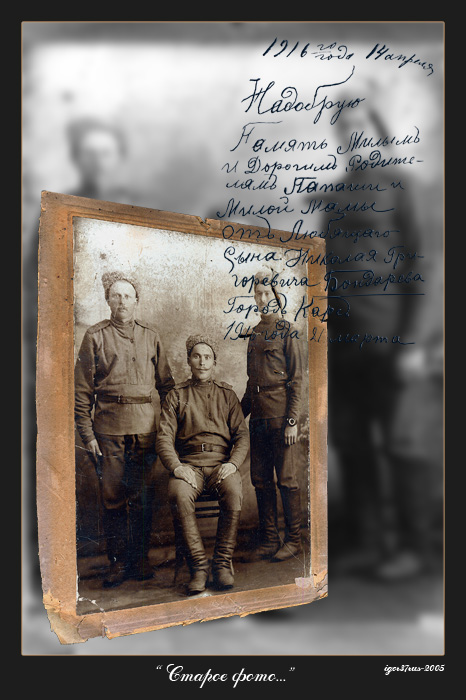 1916 го года 14 апреля
Надобрую
Память Милымъ
и Дорогимъ Родите-
лямъ Папаши и
Милой Мамы
отъ Любящаго
Сына Николая Гри-
горевича Бондарева
Городъ Карсъ
года марта
“Старое фото...”
igor37rus-2005